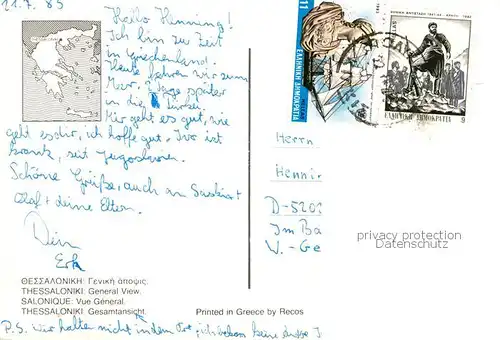 11.7.85
Hello Henning!
Ich bin zur Zeit
in Griechenland.
Heute fahren wir zum
Meer. Tage später
in die Türkei.
Mir geht es gut, wie
geht es dir, ich hoffe gut. Ivo ist
krank, seit Jugoslawien.
Schöne Grüße, auch an
Olaf + deine Eltern.
Dein
Erk
ΘΕΣΣΑΛΟΝΙΚΗ: Γενική άποψις.
THESSALONIKI: General View.
SALONIQUE: Vue General.
THESSALONIKI: Gesamtansicht.
Printed in Greece by Recos
P.S. wir halten nicht in dem Ort, ich bekam keine andre
11
ΕΛΛΗΝΙΚΗ ΔΗΜΟΚΡΑΤΙΑ
ΕΛΛΗΝΙΚΗ ΔΗΜΟΚΡΑΤΙΑ 9
Herrn
Hennin
D-5202
Im Ba
W.-Ge
privacy protection
Datenschutz